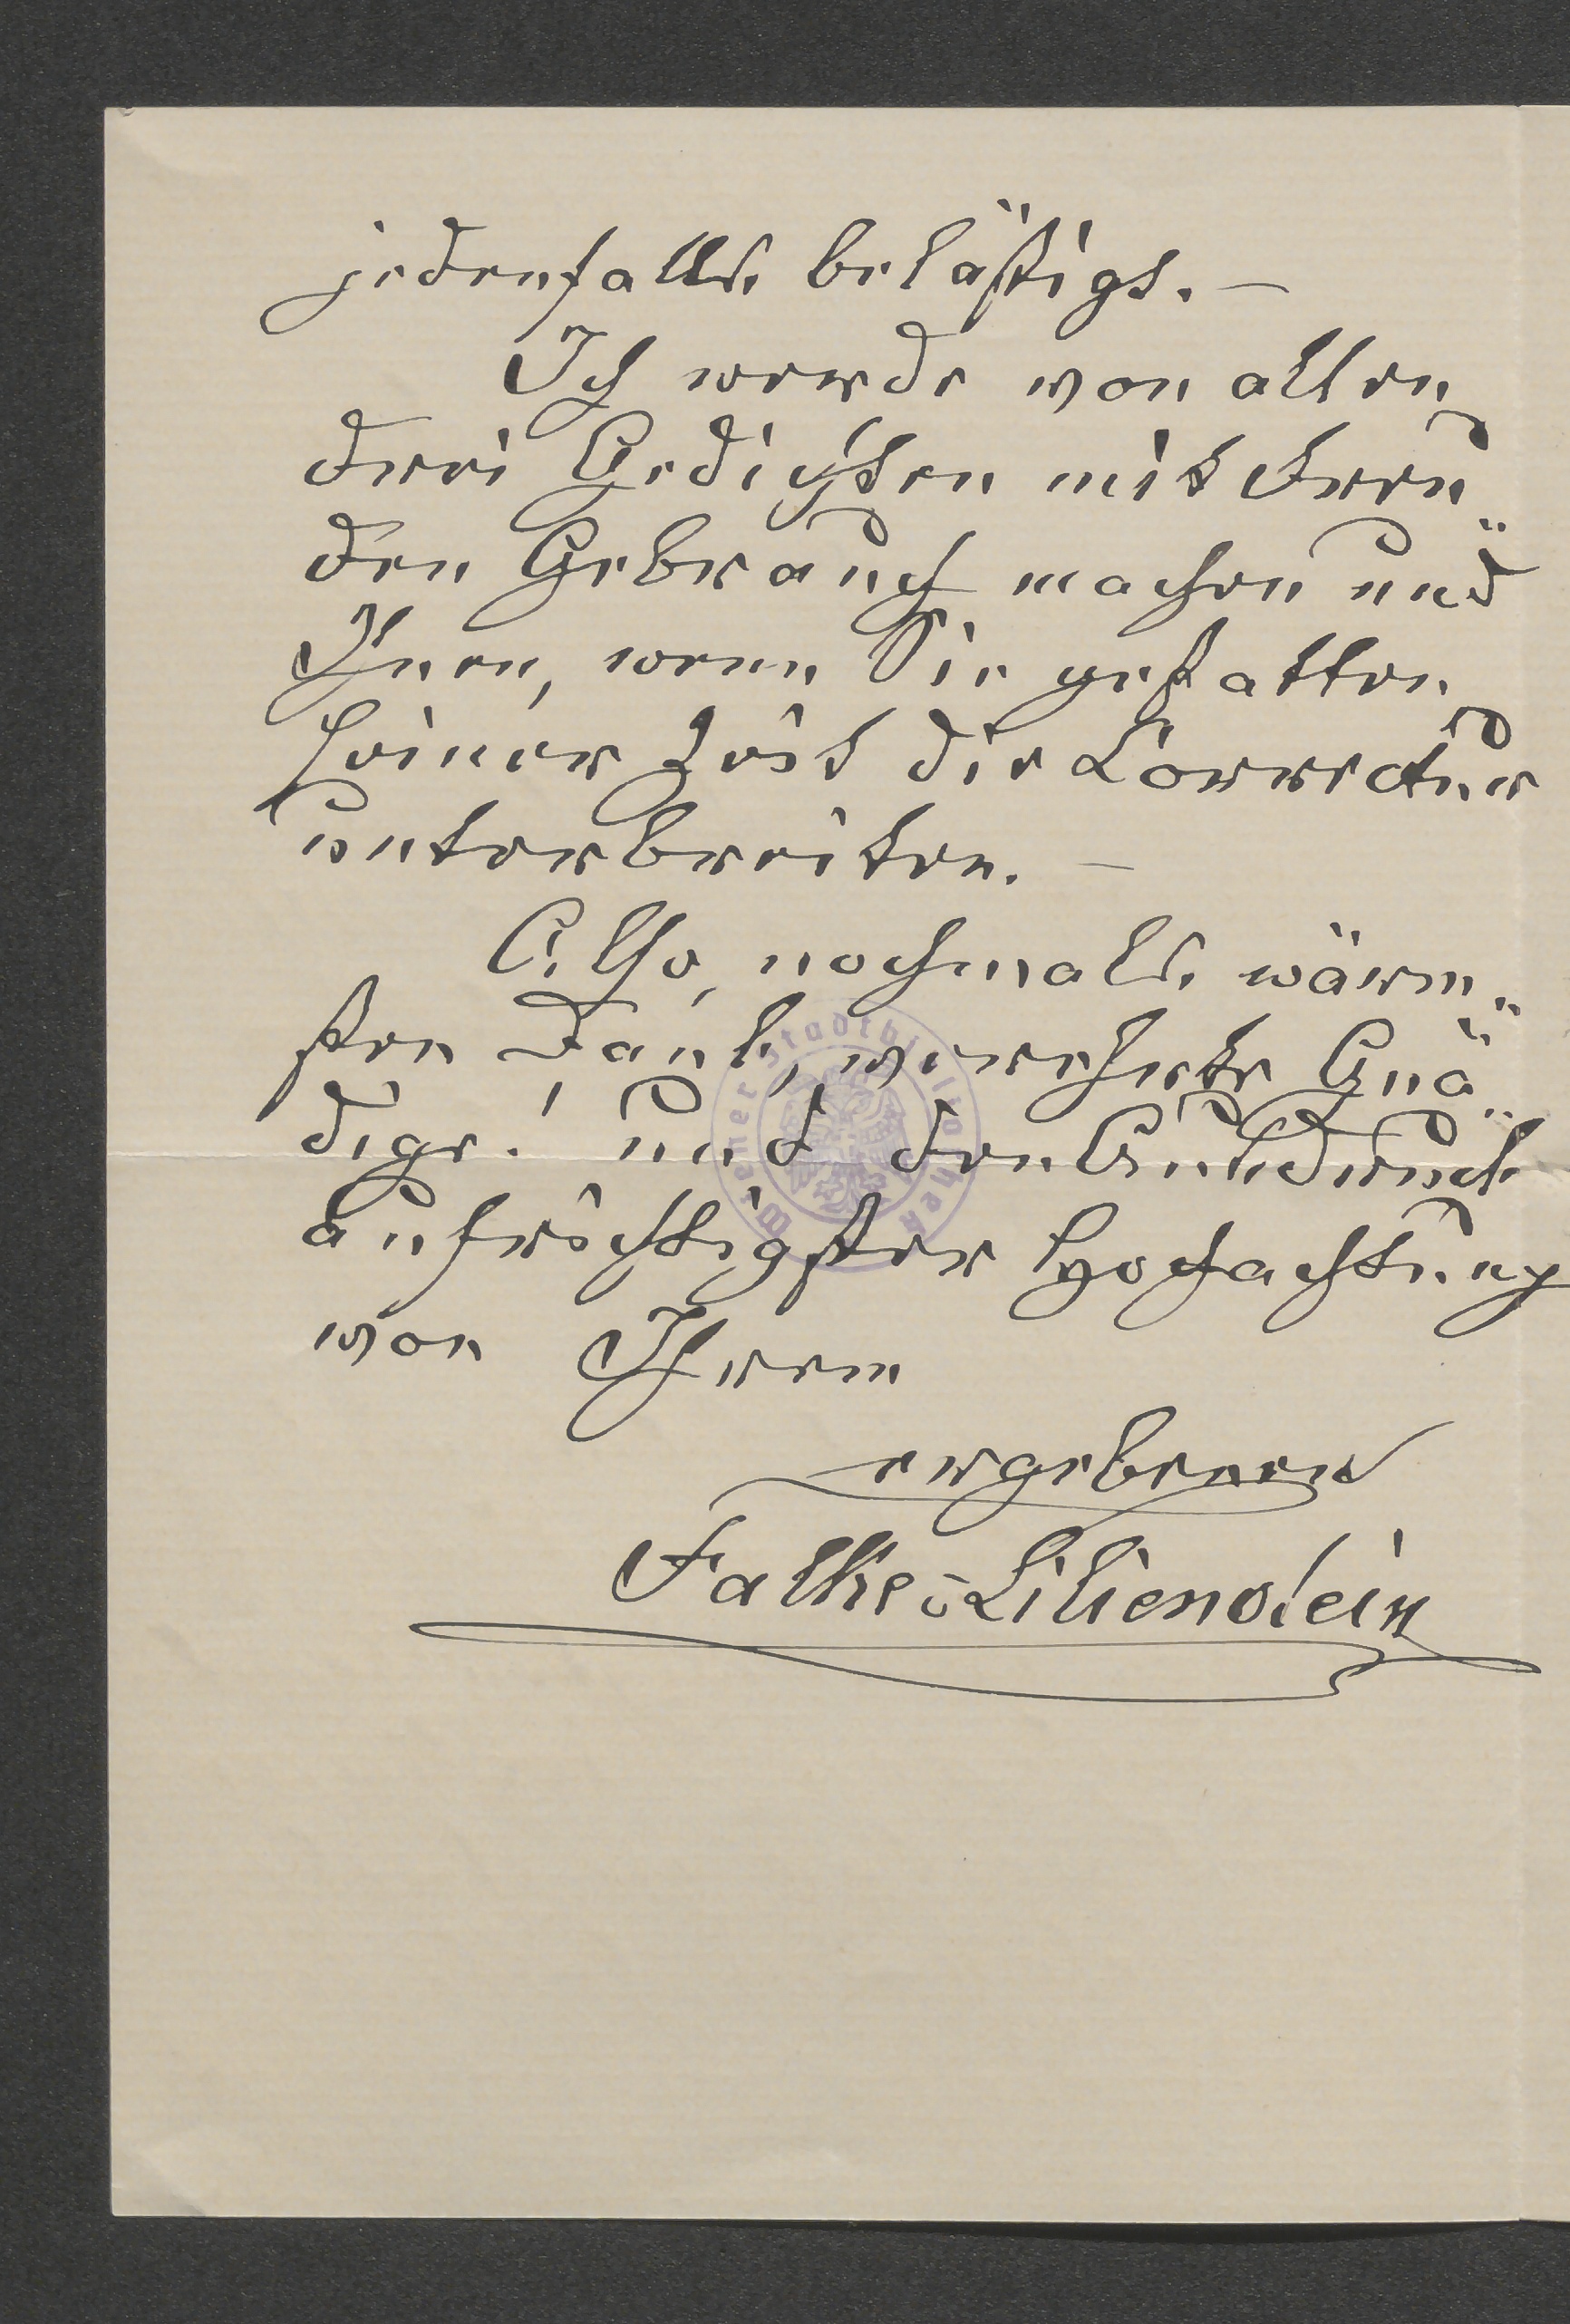 jedenfalls belästigt. —
Ich werde von allen
drei Gedichten mit Freu-
den Gebrauch machen und
Ihnen, wenn Sie gestatten
seiner Zeit die Correctur
unterbreiten. —
Also, nochmals wärm-
sten Dank, verehrte Gnä-
dige! und den Ausdruck
aufrichtigster Hochachtung
von Ihrem
ergebenen
Falke-Lilienstein
Bremer Stadtbibliothek